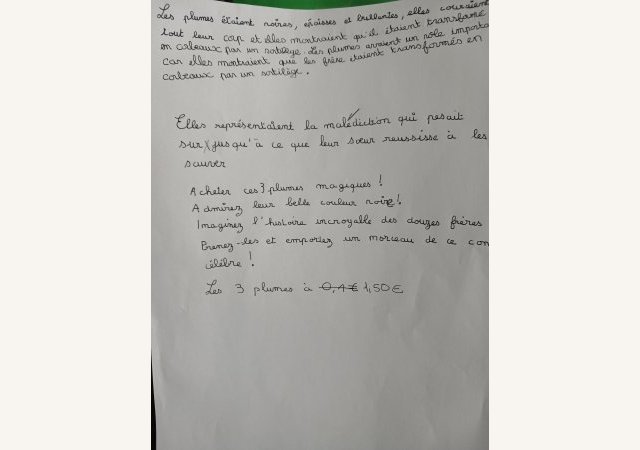 Les plumes étaient noires, épaisses et brillantes, elles couraient
tout leur cap et elles montraient qu'il étaient transformé
en corbeaux par un sortilège. Les plumes avaient un rôle importa
car elles montraient que les frère étaient transformés en
corbeaux par un sortilège.
Elles représentaient la malédiction qui pesait
sur jusqu'à ce que leur sœur reussisse à les
sauver
Acheter ces 3 plumes magiques !
Admirez leur belle couleur noire !
Imaginez l'histoire incroyable des douzes frères
Prenez-les et emportez un morceau de ce con
célèbre !
Les 3 plumes à 0,4€ 1,50€